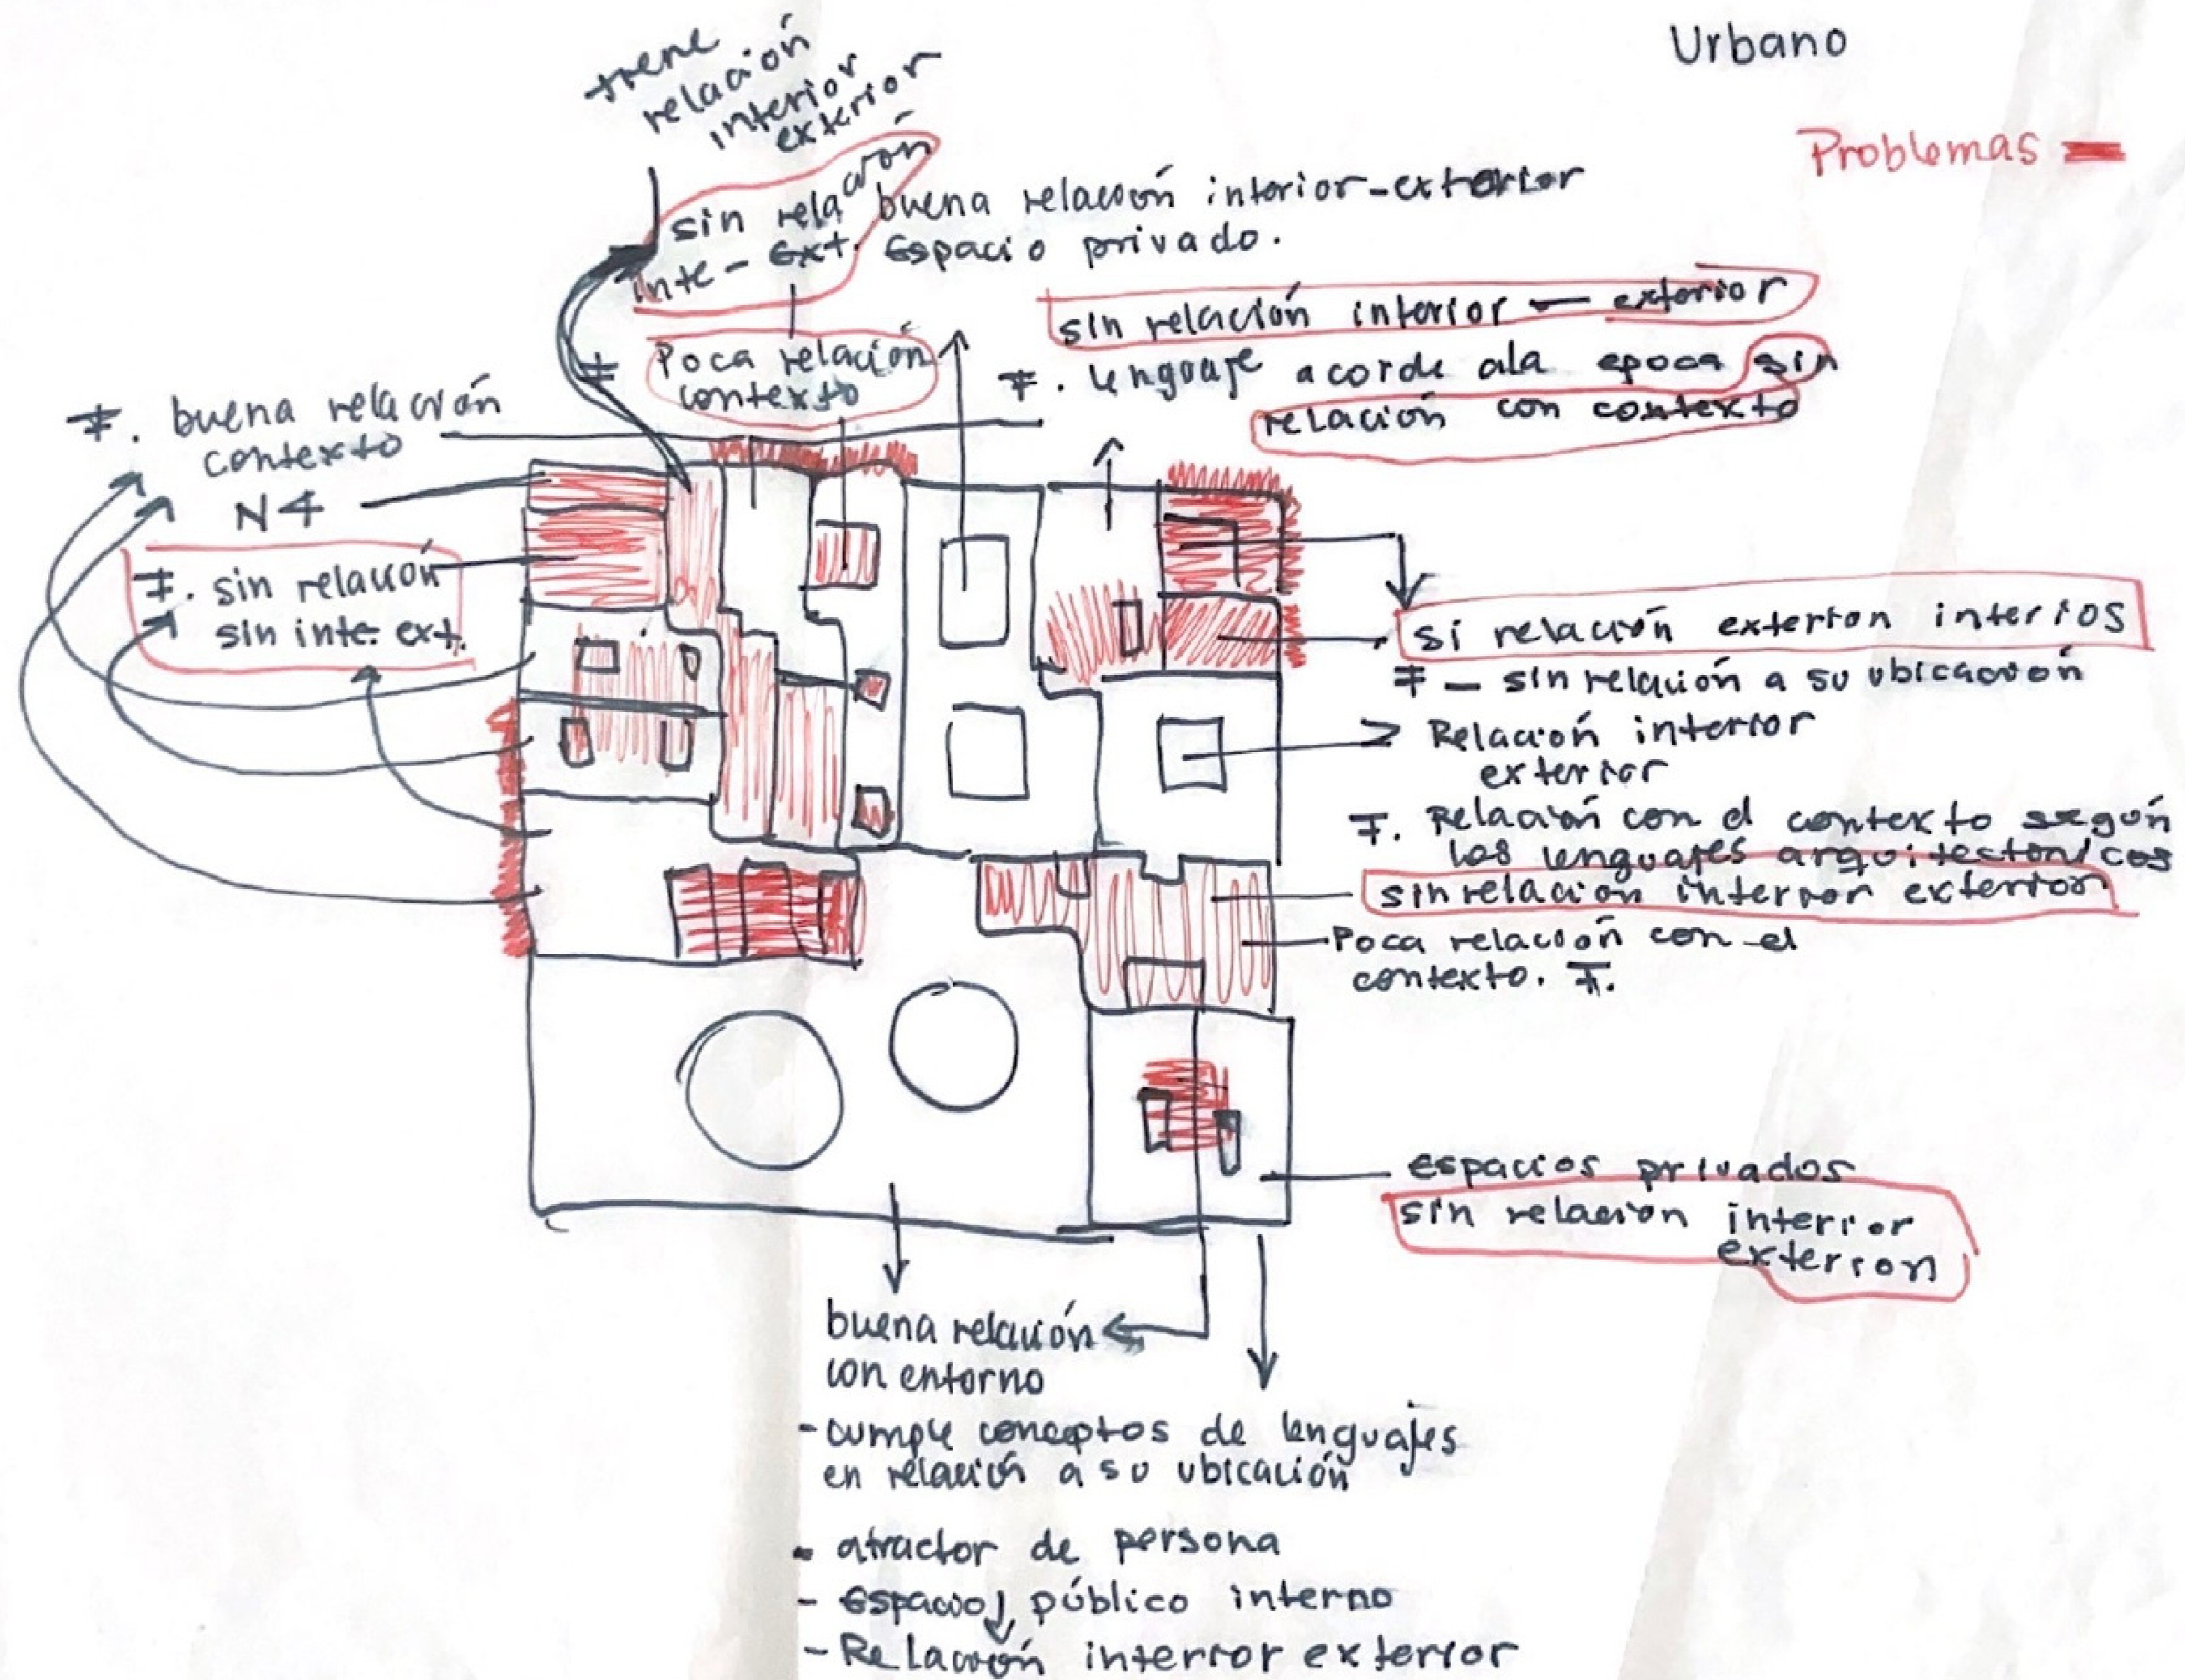 Urbano
Problemas
tiene
relación
interior
exterior
sin relación
inte-Ext.
buena relación interior-exterior
Espacio privado.
sin relación interior — exterior
Poca relación
contexto
F. lenguaje acorde ala epoca sin
relación con contexto
F. buena relación
contexto
N4
F. sin relación
sin inte. ext.
si relación exterior interios
F — sin relación a su ubicación
Relación interior
exterior
F. Relación con el contexto según
los lenguajes arquitectónicos
sin relación interior exterior
Poca relación con el
contexto. F.
espacios privados
sin relación interior
exterior
buena relación
con entorno
- cumple conceptos de lenguajes
en relación a su ubicación
- atractor de persona
- Espacio público interno
- Relación interior exterior